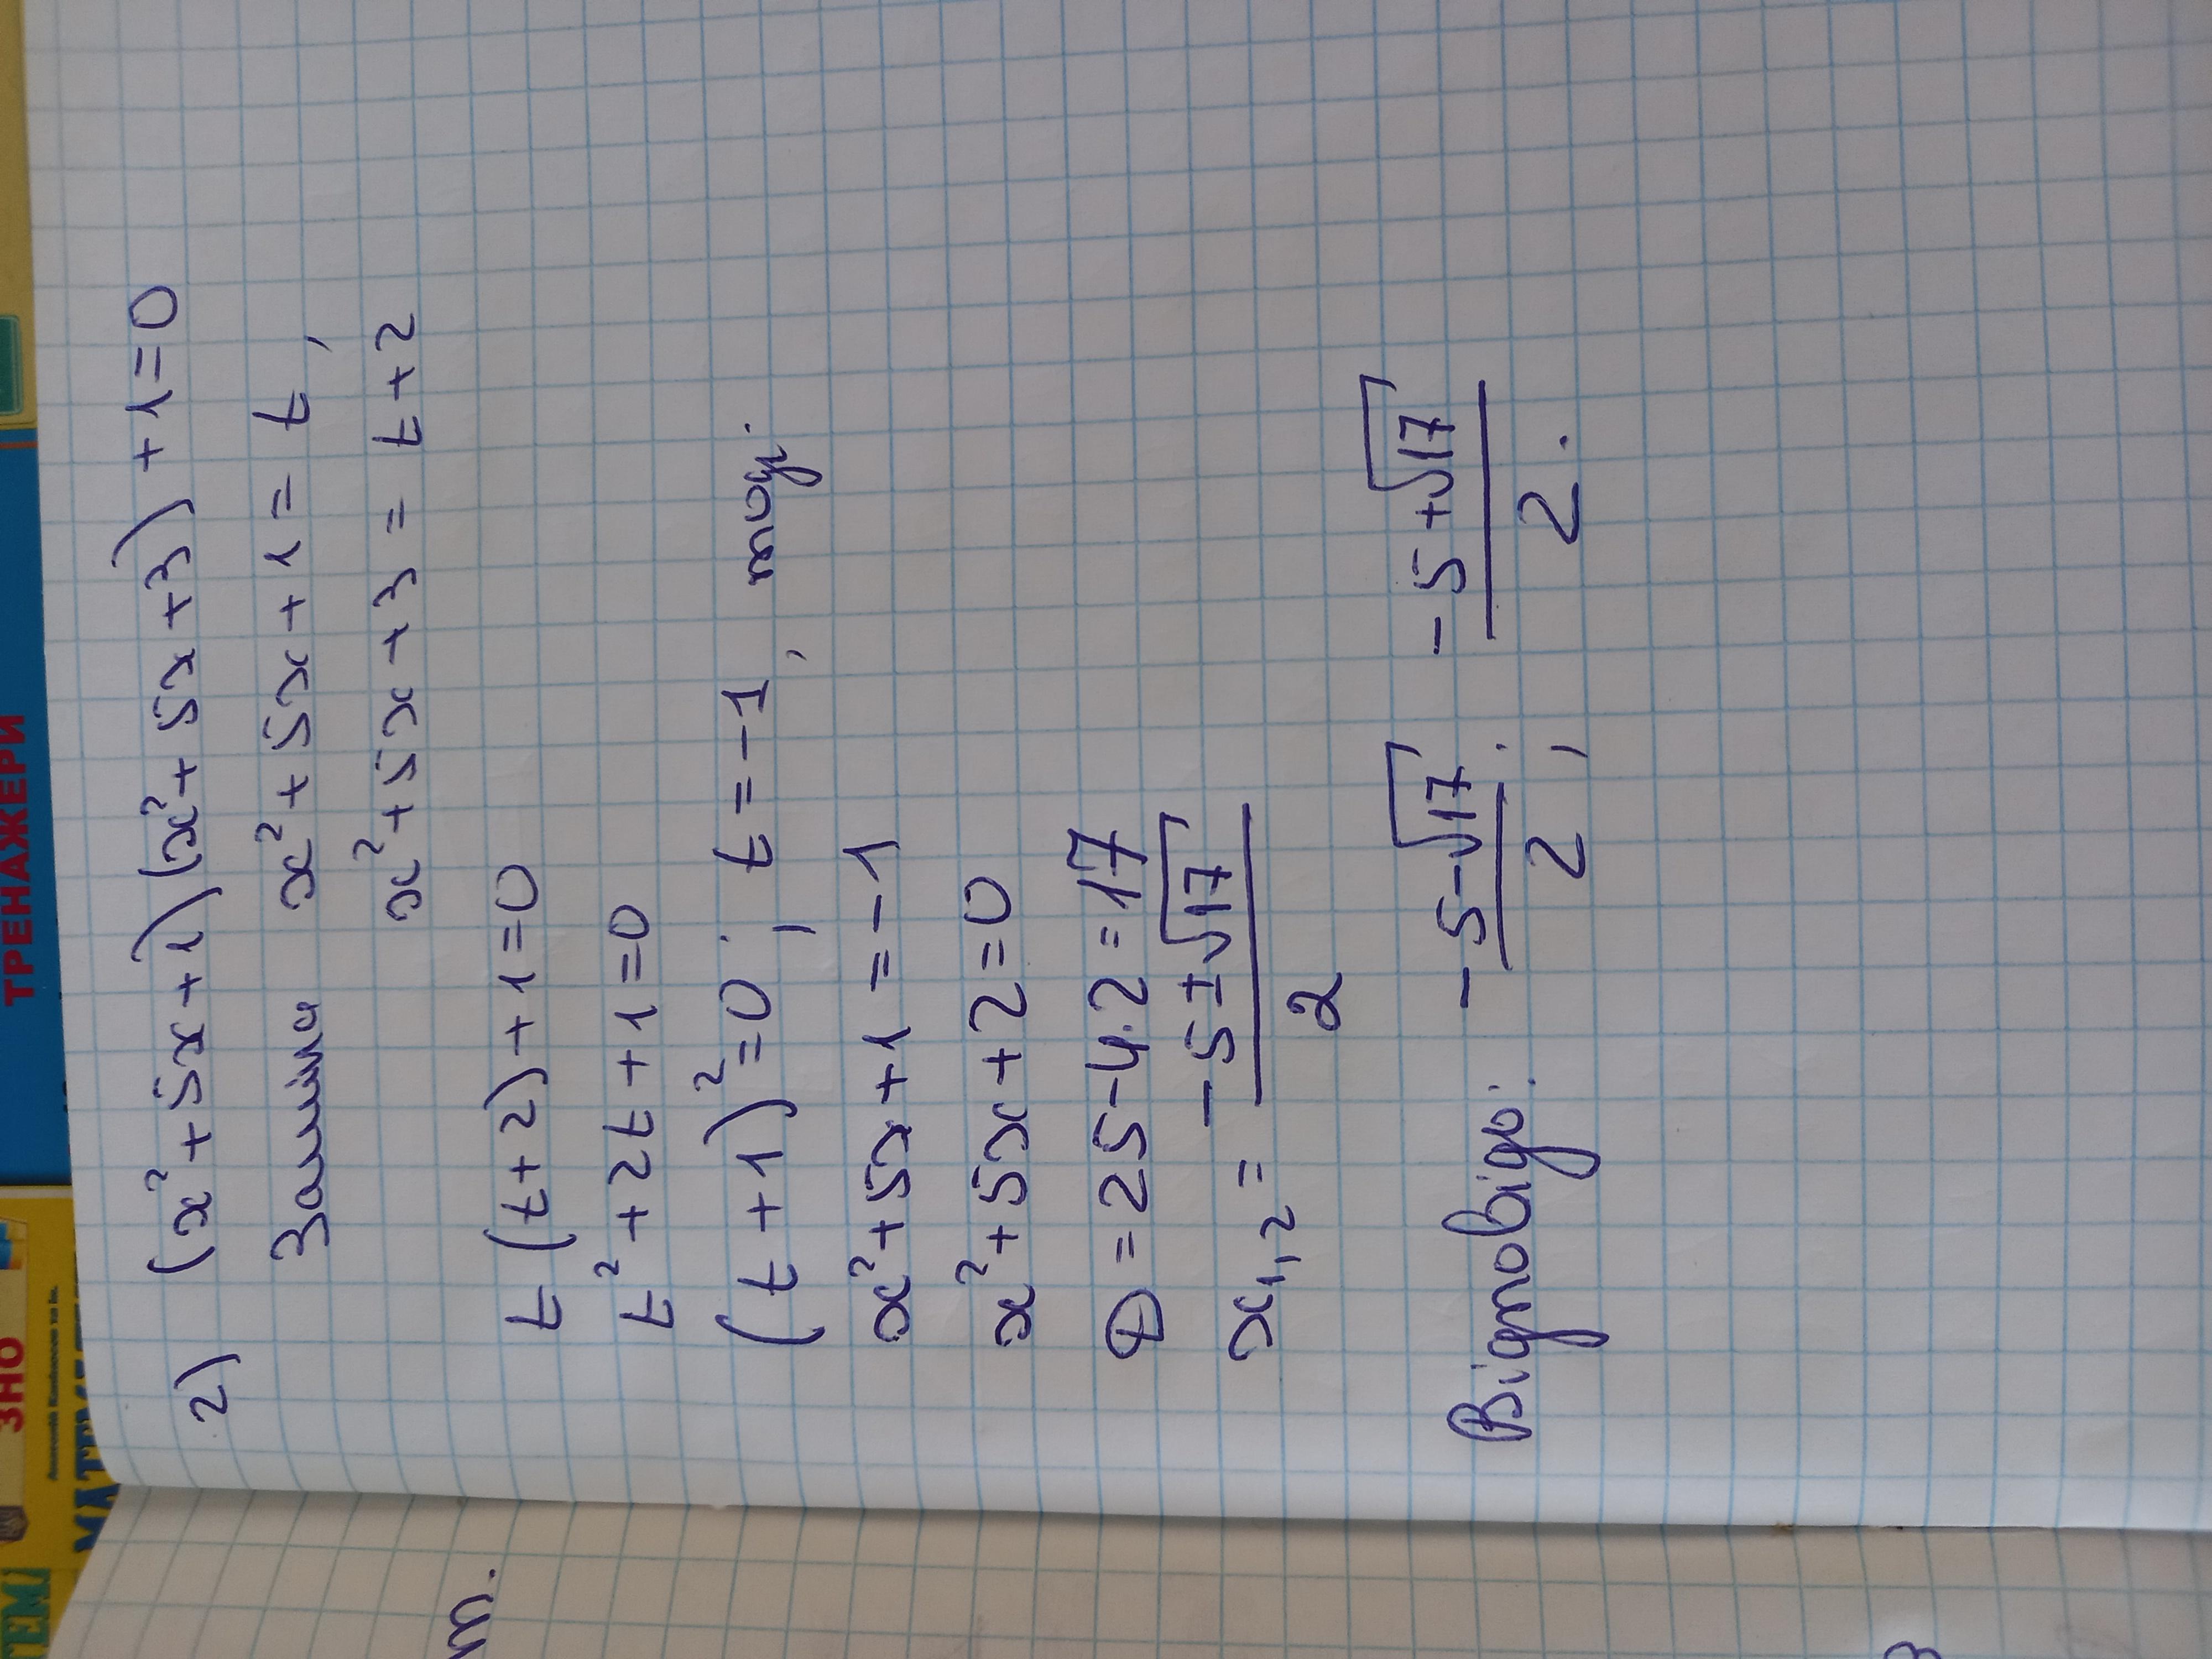 2) (x²+5x+1)(x²+5x+3)+1=0
Заміна x²+5x+1=t,
x²+5x+3=t+2
t(t+2)+1=0
t²+2t+1=0
(t+1)²=0; t=-1, тоді
x²+5x+1=-1
x²+5x+2=0
D=25-4·2=17
x₁,₂= (-5±√17)/2
Відповідь: (-5-√17)/2; (-5+√17)/2.
т.
ТРЕНАЖЕРИ
ЗНО